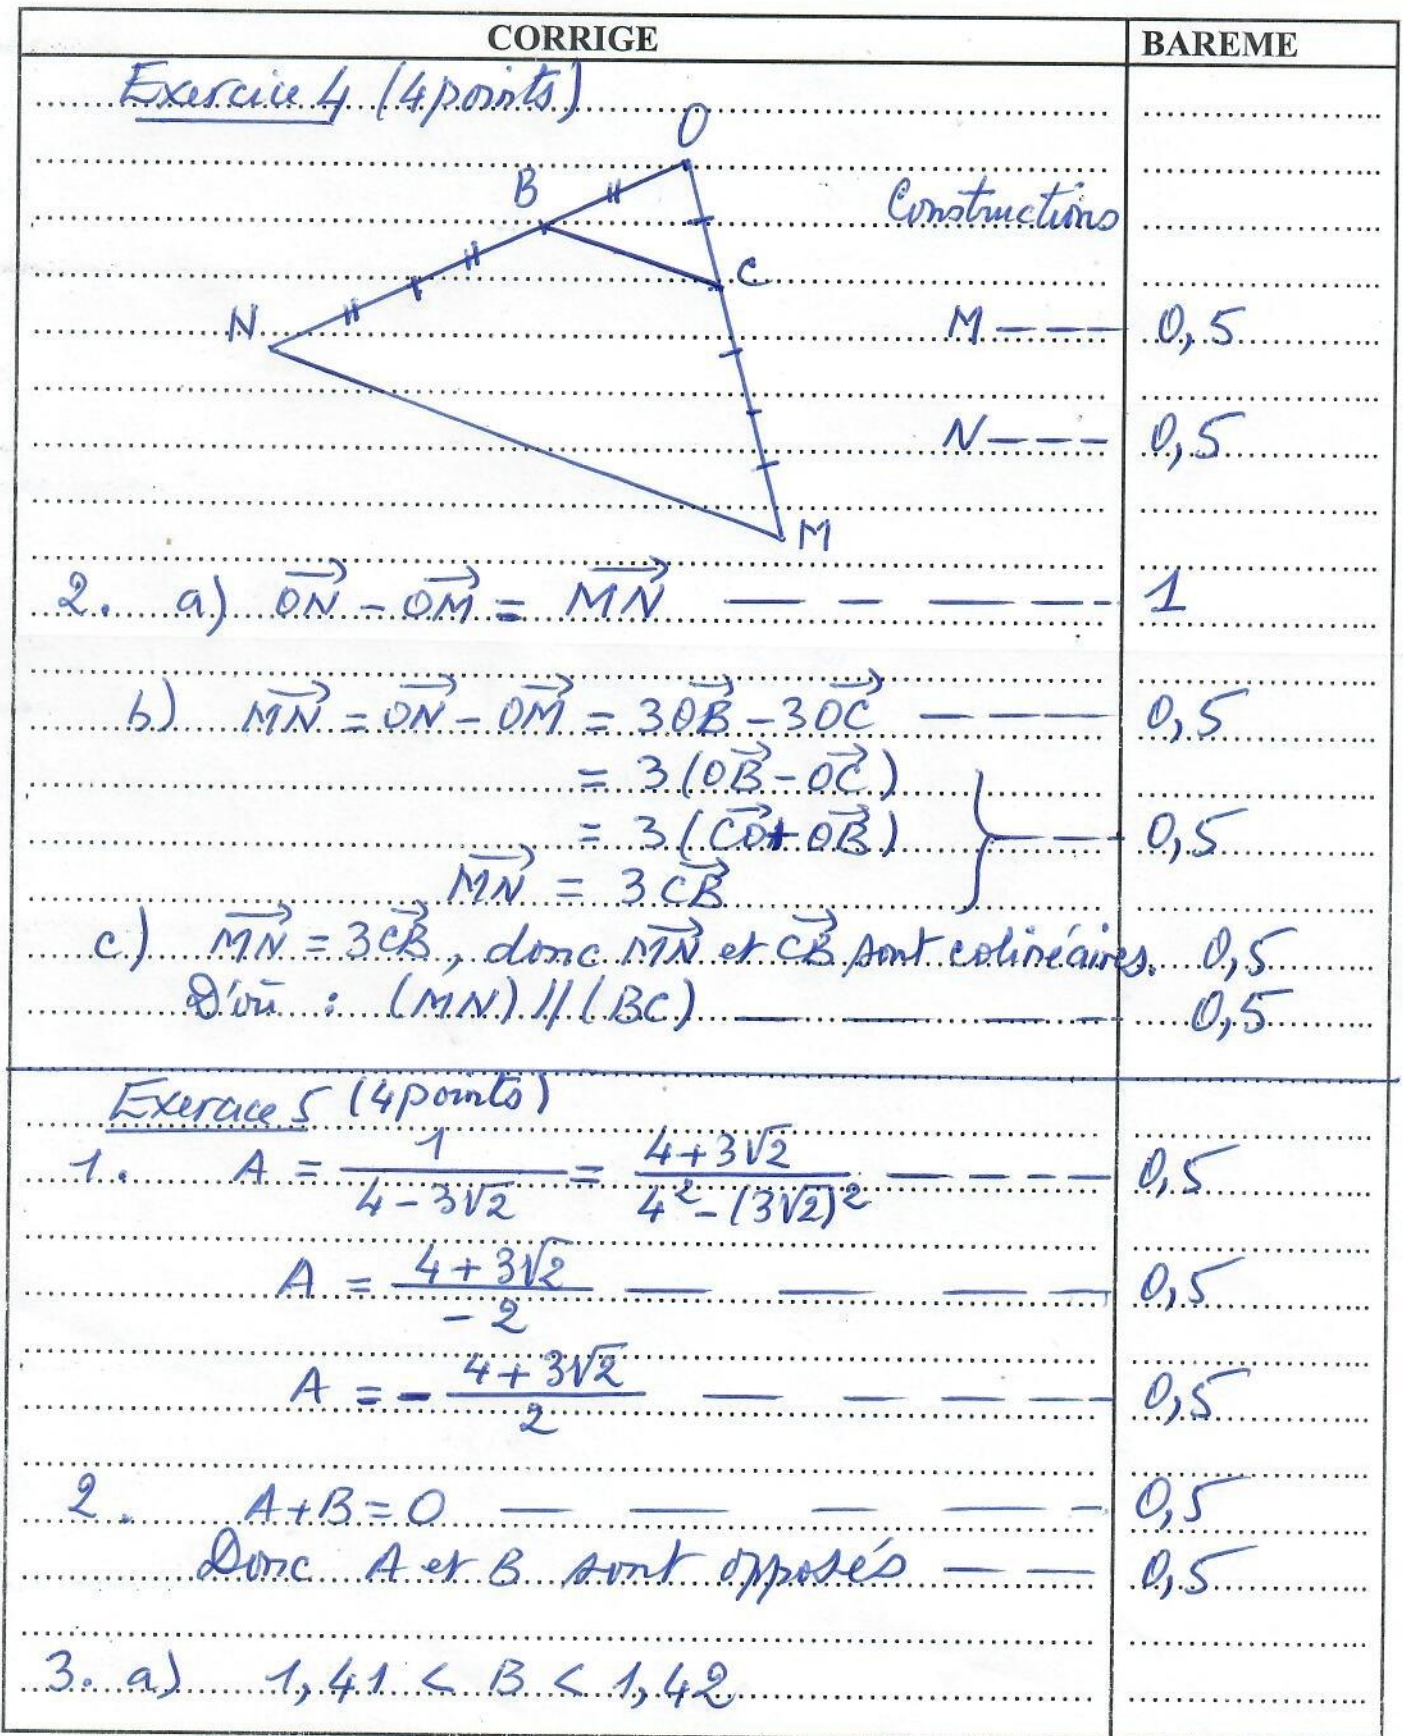 CORRIGE BAREME
Exercice 4 (4 points)
O
B
Constructions
C
N
M 0,5
N 0,5
M
2. a) \overrightarrow{ON} - \overrightarrow{OM} = \overrightarrow{MN} 1
b) \overrightarrow{MN} = \overrightarrow{ON} - \overrightarrow{OM} = 3\overrightarrow{OB} - 3\overrightarrow{OC} 0,5
= 3(\overrightarrow{OB} - \overrightarrow{OC})
= 3(\overrightarrow{CO} + \overrightarrow{OB}) 0,5
\overrightarrow{MN} = 3\overrightarrow{CB}
c) \overrightarrow{MN} = 3\overrightarrow{CB}, donc \overrightarrow{MN} et \overrightarrow{CB} sont colinéaires. 0,5
D'où : (MN) // (BC) 0,5
Exercice 5 (4 points)
1. A = \frac{1}{4-3√2} = \frac{4+3√2}{4²-(3√2)²} 0,5
A = \frac{4+3√2}{-2} 0,5
A = - \frac{4+3√2}{2} 0,5
2. A+B=0 0,5
Donc A et B sont opposés 0,5
3. a) 1,41 < B < 1,42